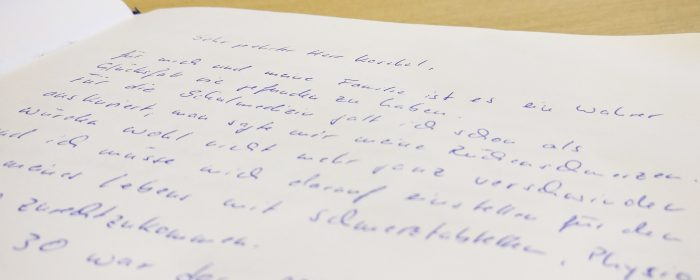 Sehr geehrter Herr
für mich und meine Familie ist es ein wahrer
Glücksfall sie gefunden zu haben.
Für die Schulmedizin galt ich schon als
austherapiert, man sagte mir meine Rückenschmerzen
würden wohl nicht mehr ganz verschwinden
und ich müsse mich darauf einstellen für den
meines Lebens mit Schmerztabletten, Physio
zurechtzukommen.
30 war